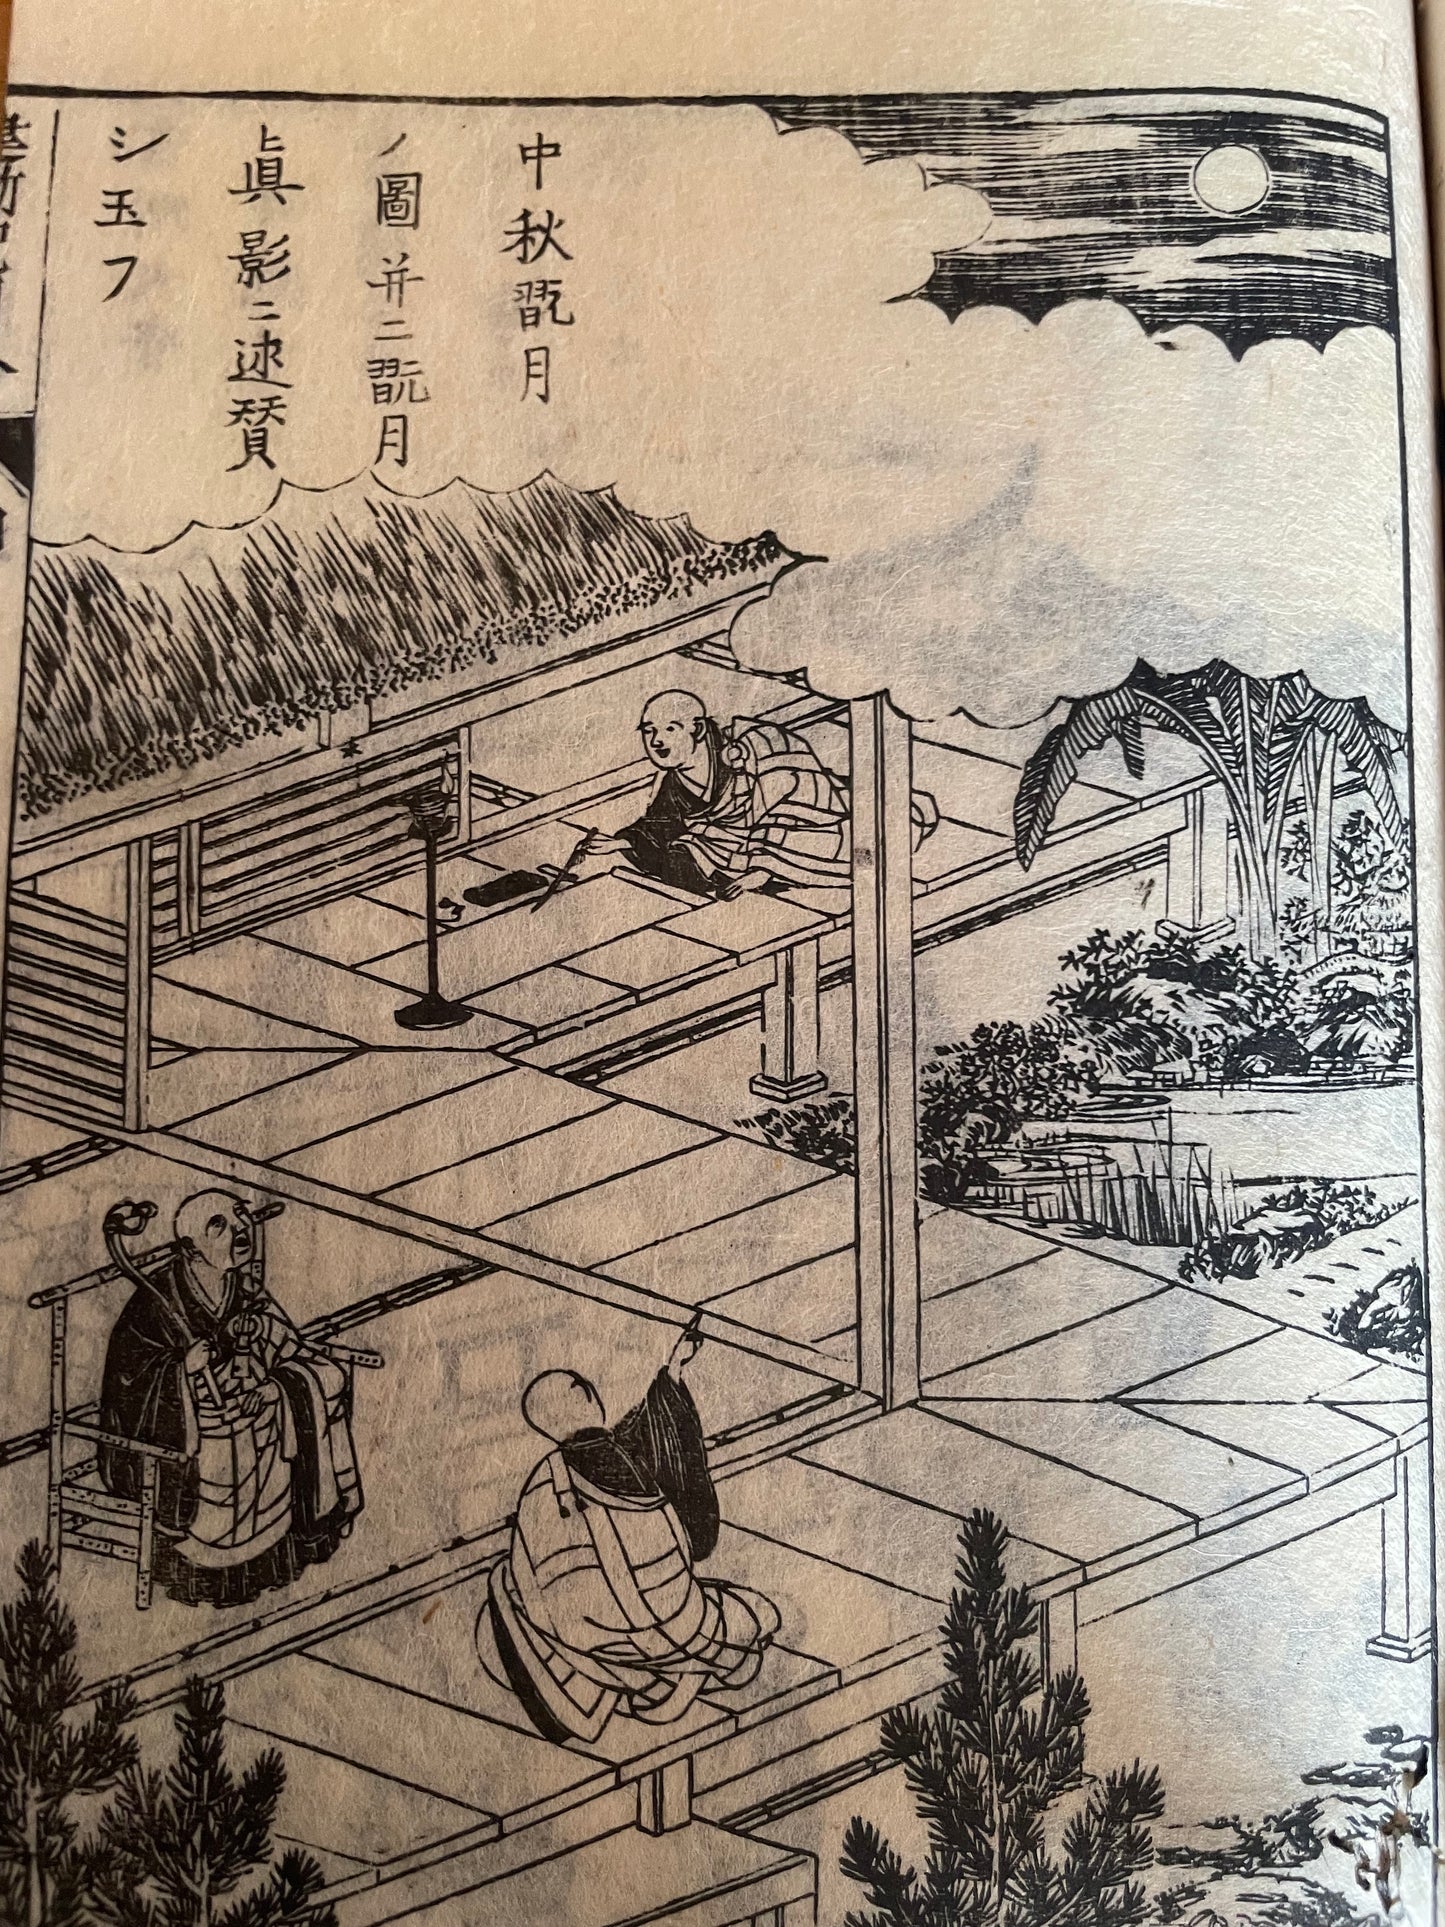 中秋翫月
ノ圖并ニ翫月
眞影ニ述賛
シ玉フ